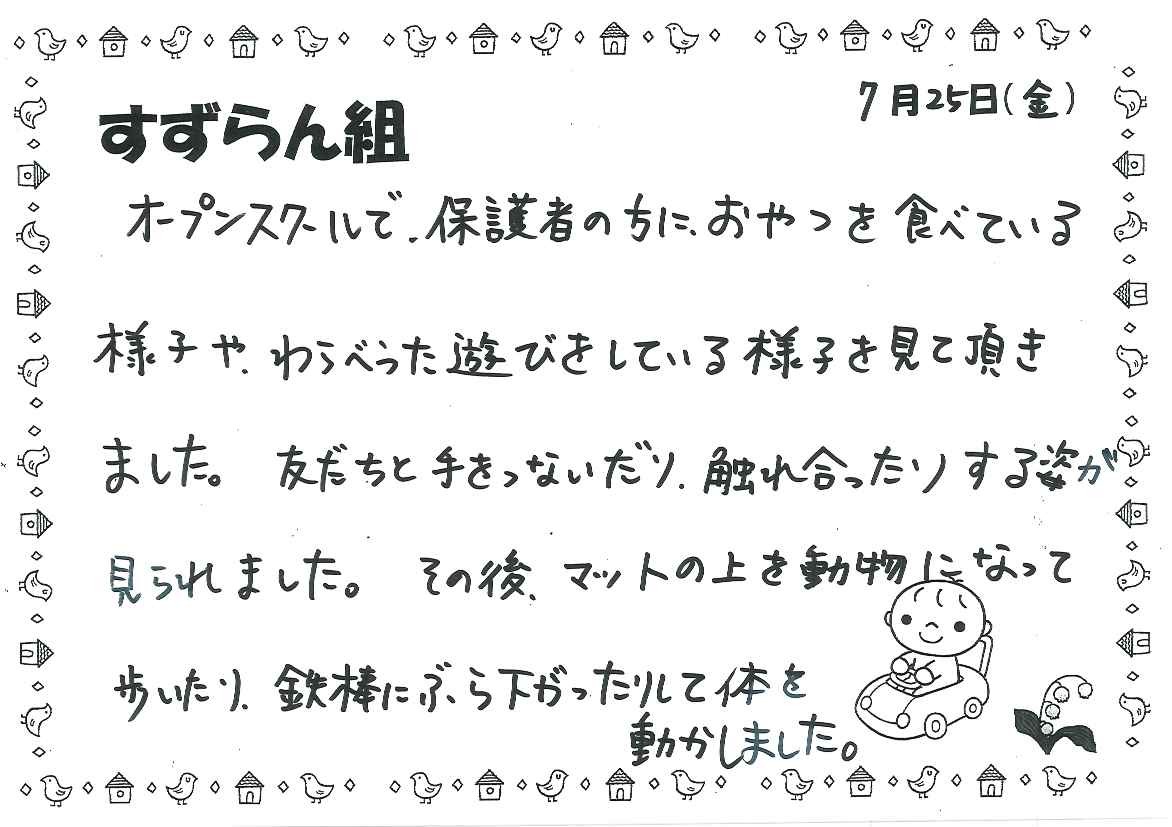 7月25日(金)
すずらん組
オープンスクールで、保護者の方に、おやつを食べている
様子や、わらべうた遊びをしている様子を見て頂き
ました。 友だちと手をつないだり、触れ合ったりする姿が
見られました。 その後、マットの上を動物になって
歩いたり、鉄棒にぶら下がったりして体を
動かしました。